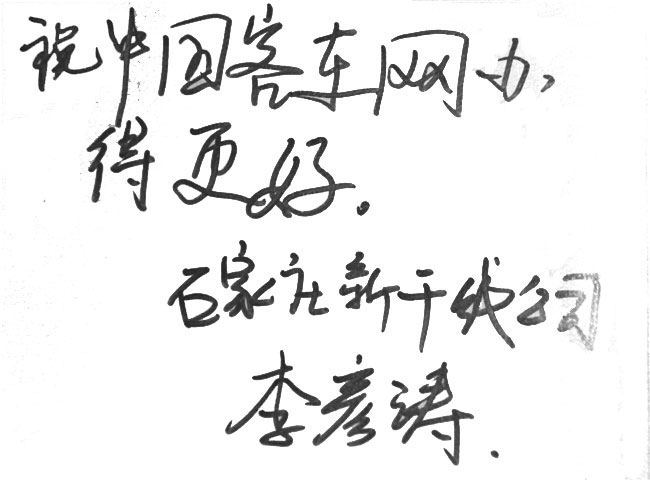 祝中国客车网办
得更好。
石家庄新干线公司
李彦涛.